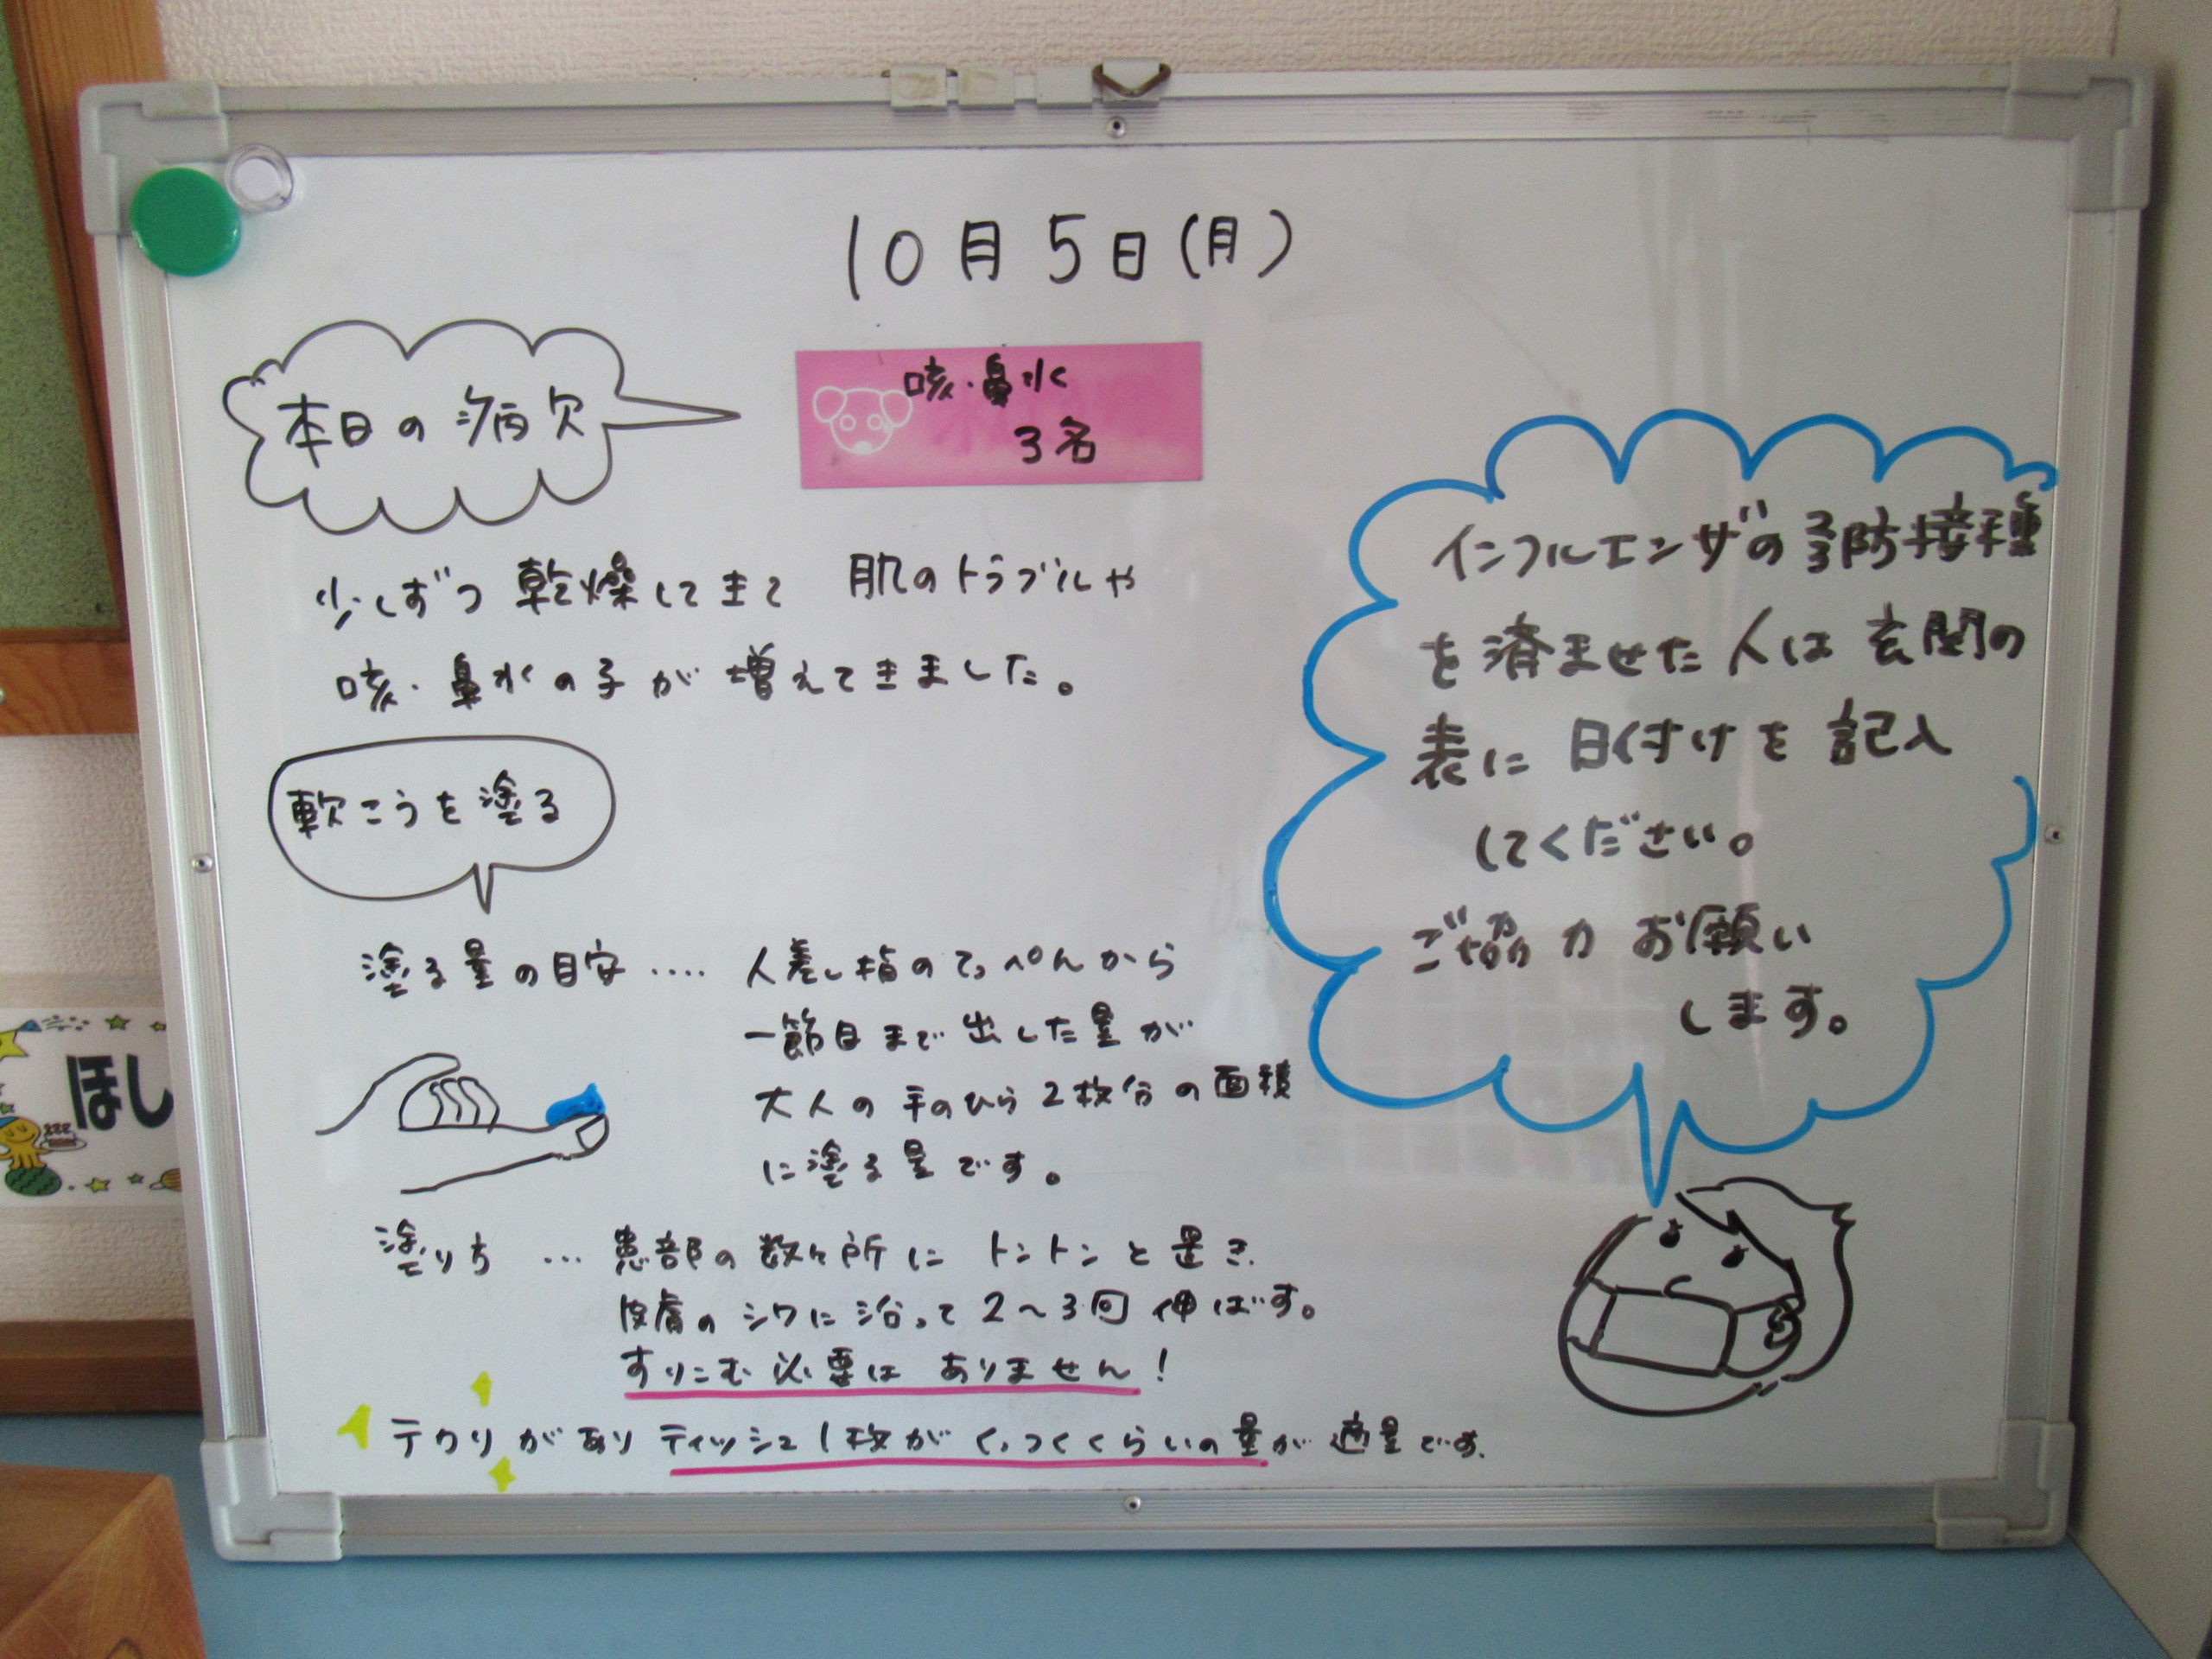 10月5日(月)
本日の病欠
咳・鼻水
3名
少しずつ乾燥してきて 肌のトラブルや
咳・鼻水の子が増えてきました。
軟こうを塗る
塗る量の目安‥‥ 人差し指のてっぺんから
一節目まで出した量が
大人の手のひら2枚分の面積
に塗る量です。
塗り方 … 患部の数ヶ所にトントンと置き、
皮膚のシワに沿って2〜3回伸ばす。
すりこむ必要はありません!
テカリがありティッシュ1枚がくっつくくらいの量が適量です。
インフルエンザの予防接種
を済ませた人は玄関の
表に日付けを記入
してください。
ご協力お願い
します。
ほし